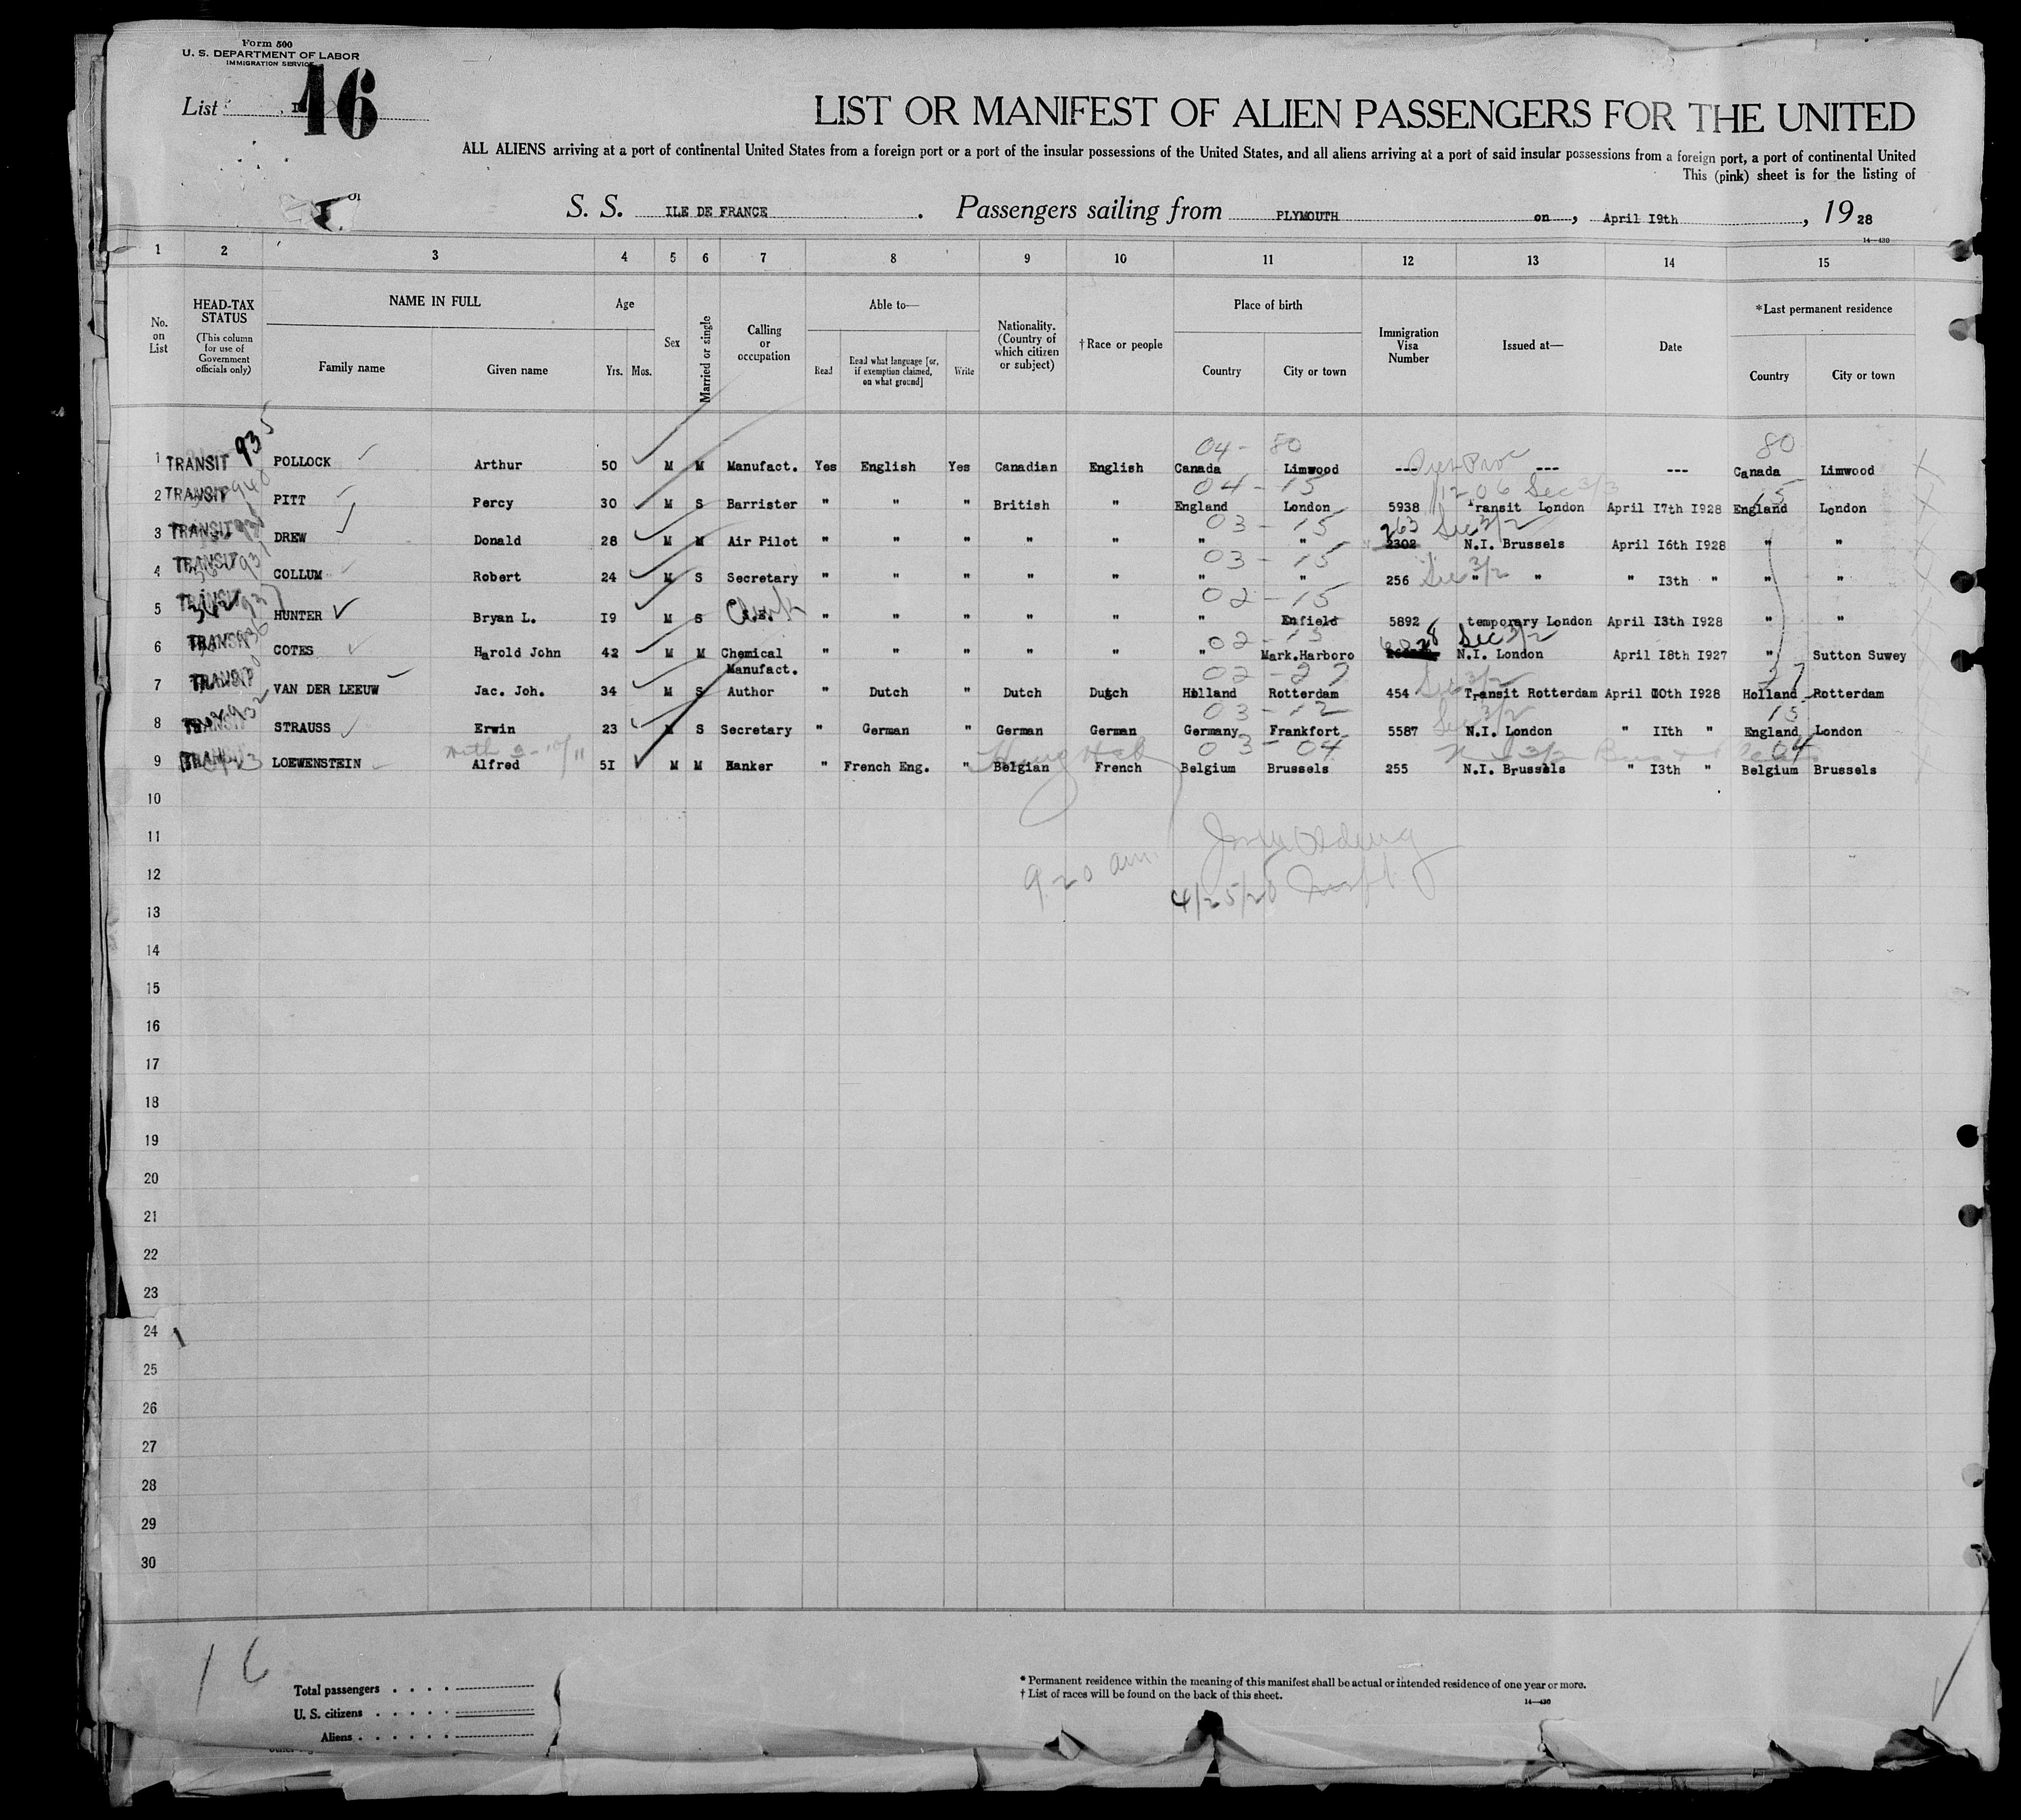 Form 500
U. S. DEPARTMENT OF LABOR
IMMIGRATION SERVICE
List 16
LIST OR MANIFEST OF ALIEN PASSENGERS FOR THE UNITED
ALL ALIENS arriving at a port of continental United States from a foreign port or a port of the insular possessions of the United States, and all aliens arriving at a port of said insular possessions from a foreign port, a port of continental United
This (pink) sheet is for the listing of
S. S. ILE DE FRANCE . Passengers sailing from PLYMOUTH on , April I9th , 19 28
14—430
1 2 3 4 5 6 7 8 9 10 11 12 13 14 15
No. on List
HEAD-TAX STATUS
(This column for use of Government officials only)
NAME IN FULL
Family name Given name
Age
Yrs. Mos.
Sex
Married or single
Calling or occupation
Able to—
Read
Read what language [or, if exemption claimed, on what ground]
Write
Nationality. (Country of which citizen or subject)
† Race or people
Place of birth
Country City or town
Immigration Visa Number
Issued at—
Date
*Last permanent residence
Country City or town
04 - 80 80
1 TRANSIT 935 POLLOCK Arthur 50 M M Manufact. Yes English Yes Canadian English Canada Limwood --- --- --- Canada Limwood
04 - 15 1206 Sec 3/3 15
2 TRANSIT 940 PITT Percy 30 M S Barrister " " " British " England London 5938 Transit London April I7th I928 England London
03 - 15 263 Sec 3/2
3 TRANSIT DREW Donald 28 M M Air Pilot " " " " " " " 2302 N.I. Brussels April I6th I928 " "
03 - 15
4 TRANSIT COLLUM Robert 24 M S Secretary " " " " " " " 256 Sec 3/2 " " " I3th " " "
02 - 15
5 TRANSIT HUNTER Bryan L. I9 M S Clerk " " " " " " Enfield 5892 temporary London April I3th I928 " "
02 - 15 Sec 3/2
6 TRANSIT 936 COTES Harold John 42 M M Chemical Manufact. " " " " " " Mark.Harboro N.I. London April I8th I927 " Sutton Suwey
02 - 27 Sec 3/2 27
7 TRANSIT VAN DER LEEUW Jac. Joh. 34 M S Author " Dutch " Dutch Dutch Holland Rotterdam 454 Transit Rotterdam April I0th I928 Holland Rotterdam
03 - 12 Sec 3/2 15
8 TRANSIT 932 STRAUSS Erwin 23 M S Secretary " German " German German Germany Frankfort 5587 N.I. London " IIth " England London
03 - 04 04
9 TRANSIT LOEWENSTEIN Alfred 5I M M Banker " French Eng. " Belgian French Belgium Brussels 255 N.I. Brussels " I3th " Belgium Brussels
10
11
12 9 20 am
13
14
15
16
17
18
19
20
21
22
23
24
25
26
27
28
29
30
16
Total passengers . . . .
U. S. citizens . . . . .
Aliens . . . . . .
* Permanent residence within the meaning of this manifest shall be actual or intended residence of one year or more.
† List of races will be found on the back of this sheet.
14—430